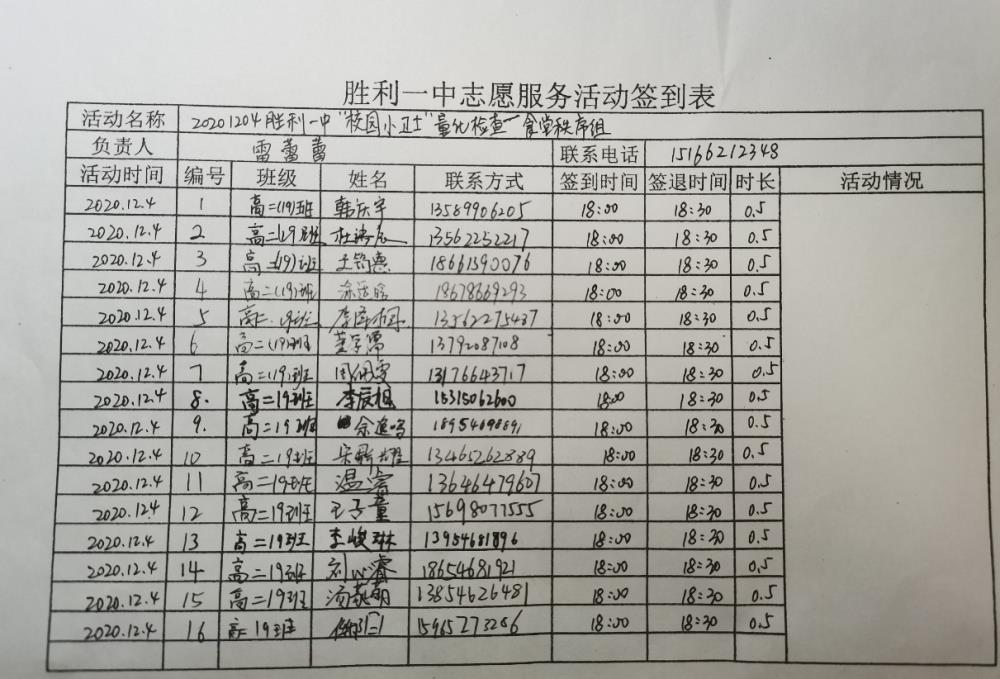 胜利一中志愿服务活动签到表
活动名称 20201204胜利一中"校园小卫士"量化检查—食堂秩序组
负责人 雷蕾蕾 联系电话 15166212348
活动时间 编号 班级 姓名 联系方式 签到时间 签退时间 时长 活动情况
2020.12.4 1 高二(19)班 韩庆宇 13589906205 18:00 18:30 0.5
2020.12.4 2 高二(19)班 13562252217 18:00 18:30 0.5
2020.12.4 3 高二(19)班 18661390076 18:00 18:30 0.5
2020.12.4 4 高二(19)班 18678669293 18:00 18:30 0.5
2020.12.4 5 高二.19班 13562275437 18:00 18:30 0.5
2020.12.4 6 高二(19)班 13792087108 18:00 18:30 0.5
2020.12.4 7 高二(19)班 13176643717 18:00 18:30 0.5
2020.12.4 8. 高二19班 李辰旭 15315062600 18:00 18:30 0.5
2020.12.4 9. 高二19班 18954698891 18:00 18:30 0.5
2020.12.4 10 高二19班 13465262889 18:00 18:30 0.5
2020.12.4 11 高二19班 温 13646479607 18:00 18:30 0.5
2020.12.4 12 高二19班 王子童 15698077555 18:00 18:30 0.5
2020.12.4 13 高二19班 李峻琳 13954681896 18:00 18:30 0.5
2020.12.4 14 高二19班 刘心睿 18654681921 18:00 18:30 0.5
2020.12.4 15 高二19班 13854626481 18:00 18:30 0.5
2020.12.4 16 高二19班 15965273286 18:00 18:30 0.5